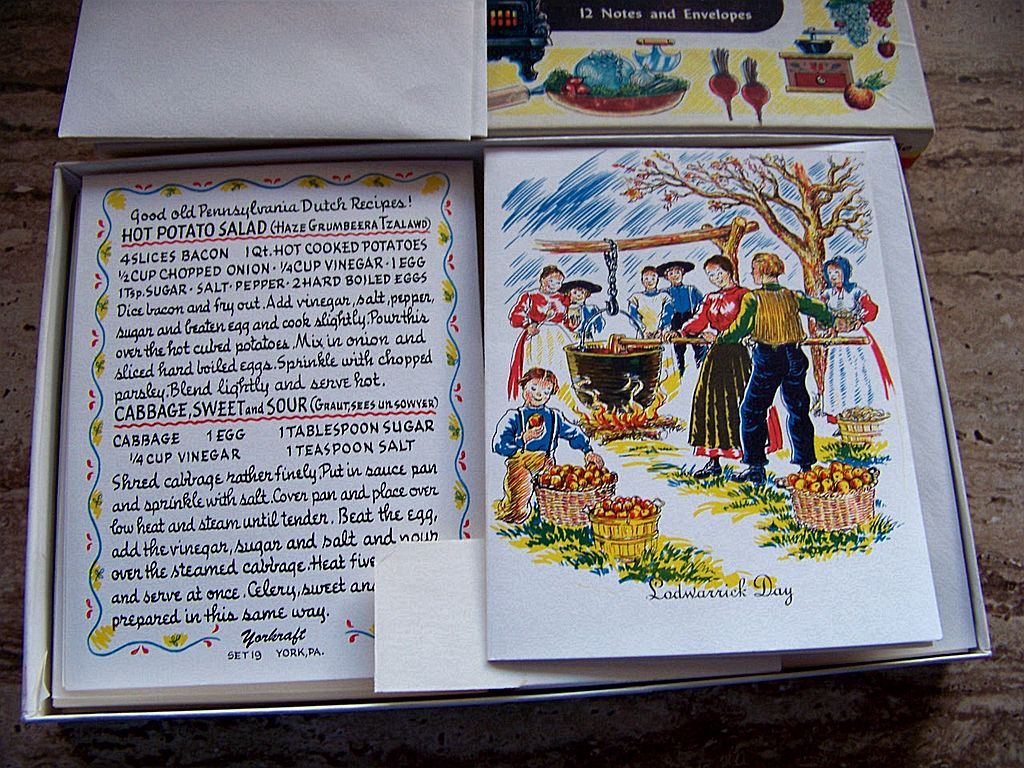 12 Notes and Envelopes
Good old Pennsylvania Dutch Recipes!
HOT POTATO SALAD (HAZE GRUMBEERA TZALAWD)
4 SLICES BACON 1 QT. HOT COOKED POTATOES
½ CUP CHOPPED ONION · ¼ CUP VINEGAR · 1 EGG
1 TSP. SUGAR · SALT · PEPPER · 2 HARD BOILED EGGS
Dice bacon and fry out. Add vinegar, salt, pepper,
sugar and beaten egg and cook slightly. Pour this
over the hot cubed potatoes. Mix in onion and
sliced hard boiled eggs. Sprinkle with chopped
parsley. Blend lightly and serve hot.
CABBAGE, SWEET and SOUR (GRAUT, SEES UN SOWYER)
CABBAGE 1 EGG 1 TABLESPOON SUGAR
¼ CUP VINEGAR 1 TEASPOON SALT
Shred cabbage rather finely. Put in sauce pan
and sprinkle with salt. Cover pan and place over
low heat and steam until tender. Beat the egg,
add the vinegar, sugar and salt and pour
over the steamed cabbage. Heat five
and serve at once. Celery, sweet an
prepared in this same way.
Yorkraft
SET 19 YORK, PA.
Lodwarrick Day